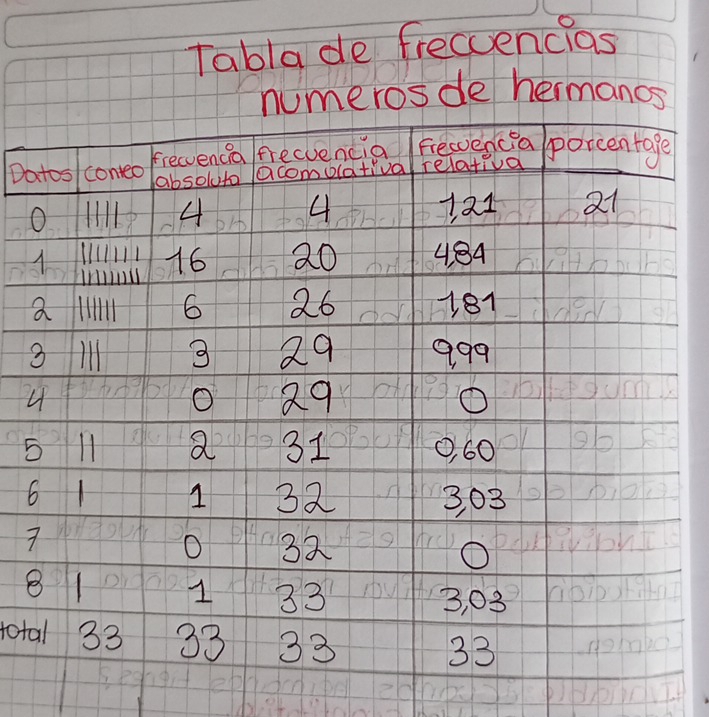 Tabla de frecuencias
numeros de hermanos
Datos conteo frecuencia absoluto frecuencia acomulativa frecuencia relativa porcentaje
0 IIIII 4 4 1,21 21
1 IIIIIII IIIIIIII 16 20 4,84
2 IIIIII 6 26 1,81
3 III 3 29 9,99
4 0 29 0
5 II 2 31 0,60
6 I 1 32 3,03
7 0 32 0
8 I 1 33 3,03
total 33 33 33 33